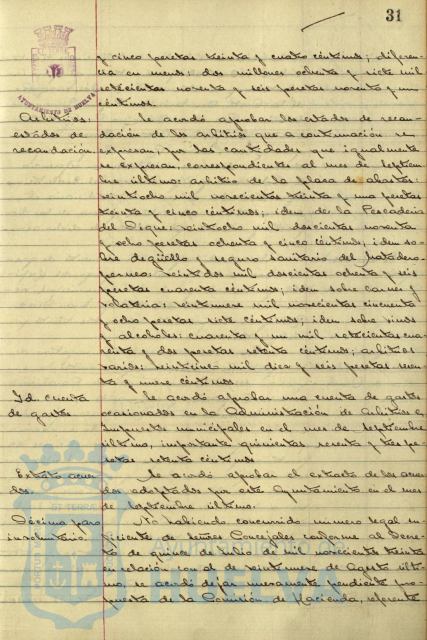 31
AYUNTAMIENTO DE HUELVA
y cinco pesetas treinta y cuatro céntimos; diferen-
cia en menos: dos millones ochenta y siete mil
setecientas noventa y seis pesetas noventa y un
céntimos.
Arbitrios:
estados de
recaudación.
Se acordó aprobar los estados de recau-
dación de los arbitrios que a continuación se
expresan, por las cantidades que igualmente
se expresan, correspondientes al mes de Septiem-
bre último: arbitrio de la plaza de abastos:
veintiocho mil novecientas treinta y una pesetas
treinta y cinco céntimos; idem de la Pescadería
del Dique: veintiocho mil doscientas noventa
y ocho pesetas ochenta y cinco céntimos; idem so-
bre degüello y seguro sanitario del Matadero:
veintidós mil doscientas ochenta y seis
pesetas cuarenta céntimos; idem sobre carnes y
volatería: veintinueve mil novecientas cincuenta
y ocho pesetas siete céntimos; idem sobre vinos
y alcoholes: cuarenta y un mil setecientas cua-
renta y dos pesetas setenta céntimos; arbitrios
varios: veintcinco mil diez y seis pesetas sesen-
ta y nueve céntimos.
Id. cuenta
de gastos
Se acordó aprobar una cuenta de gastos
ocasionados en la Administración de Arbitrios e
Impuestos municipales en el mes de Septiembre
último, importante quinientas sesenta y tres pe-
setas setenta céntimos
Extracto acuer-
dos.
Se acordó aprobar el extracto de los acuer-
dos adoptados por este Ayuntamiento en el mes
de Septiembre último.
Décima paro
involuntario.
No habiendo concurrido número legal su-
ficiente de Señores Concejales conforme al Decre-
to de quince de Julio de mil novecientos treinta
en relación con el de veintinueve de Agosto últi-
mo, se acordó dejar nuevamente pendiente pro-
puesta de la Comisión de Hacienda, referente